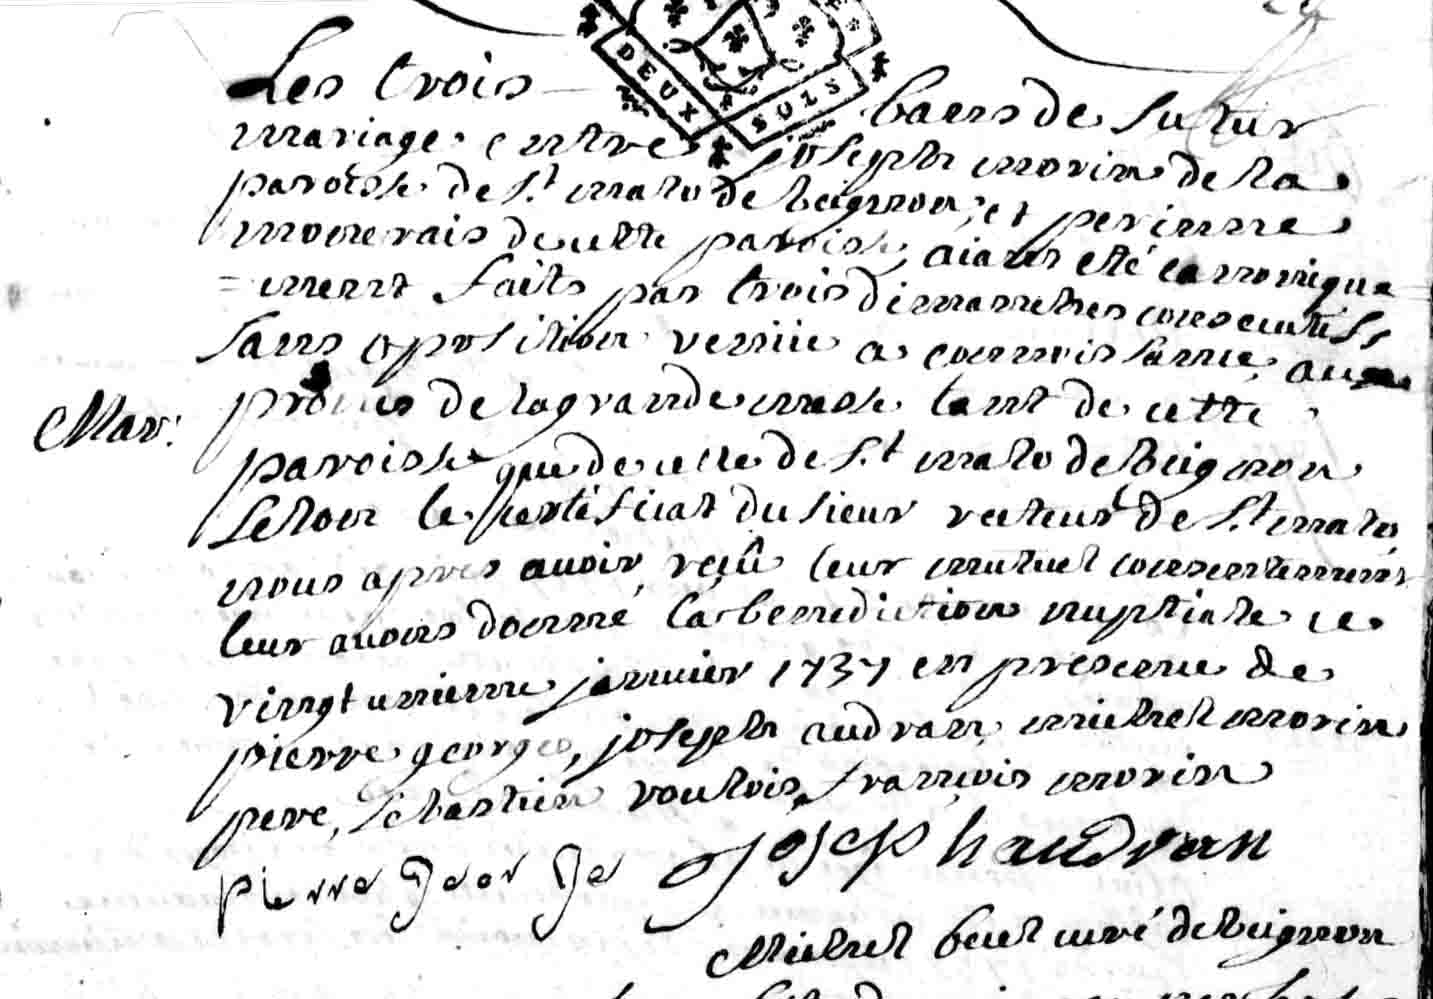 DEUX SOLS
Les trois bans de futur
mariage entre joseph morin de la
paroisse de St malo de beignon, et perinne
moverais de cette paroisse, aians eté canonique
=ment faits par trois dimanches consecutifs
sans oposition venüe a connoissance, aux
Mar:
prones de la grande messe tant de cette
paroisse que de celle de St malo de Beignon
selon le certificat du sieur recteur de St malo
nous apres avoir reçû leur mutuel consentement
leur avons donné la benediction nuptiale ce
vingt unieme janvier 1737 en presence de
pierre george, joseph audran, michel morin
pere, sebastien voulois, françois morin
pierre George joseph audran
Michel beul curé de Beignon